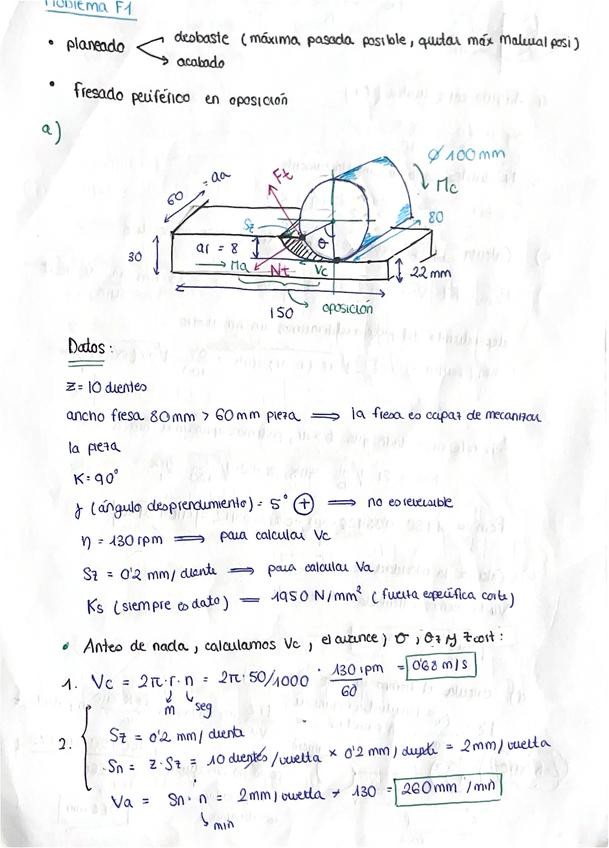 Problema F1
• planeado desbaste (máxima pasada posible, quitar máx material posi)
acabado
• fresado periférico en oposición
a)
Ø 100mm
Mc
60 = aa
Ft
80
Sz
θ
30
ar = 8
Ma
Nt
Vc
22 mm
150
oposición
Datos:
Z = 10 dientes
ancho fresa 80mm > 60mm pieza ⟹ la fresa es capaz de mecanizar
la pieza
K = 90°
γ (ángulo desprendimiento) = 5° ⊕ ⟹ no es reversible
n = 130 rpm ⟹ para calcular Vc
Sz = 0'2 mm/diente ⟹ para calcular Va
Ks (siempre es dato) = 1950 N/mm² (fuerza específica corte)
• Antes de nada, calculamos Vc, el avance, θ, θz y zcort:
1. Vc = 2π·r·n = 2π·50/1000 · 130 rpm/60 = 0'68 m/s
m seg
2. Sz = 0'2 mm/diente
Sn = z·Sz = 10 dientes/vuelta × 0'2 mm/diente = 2mm/vuelta
Va = Sn·n = 2mm/vuelta * 130 = 260mm/min
min